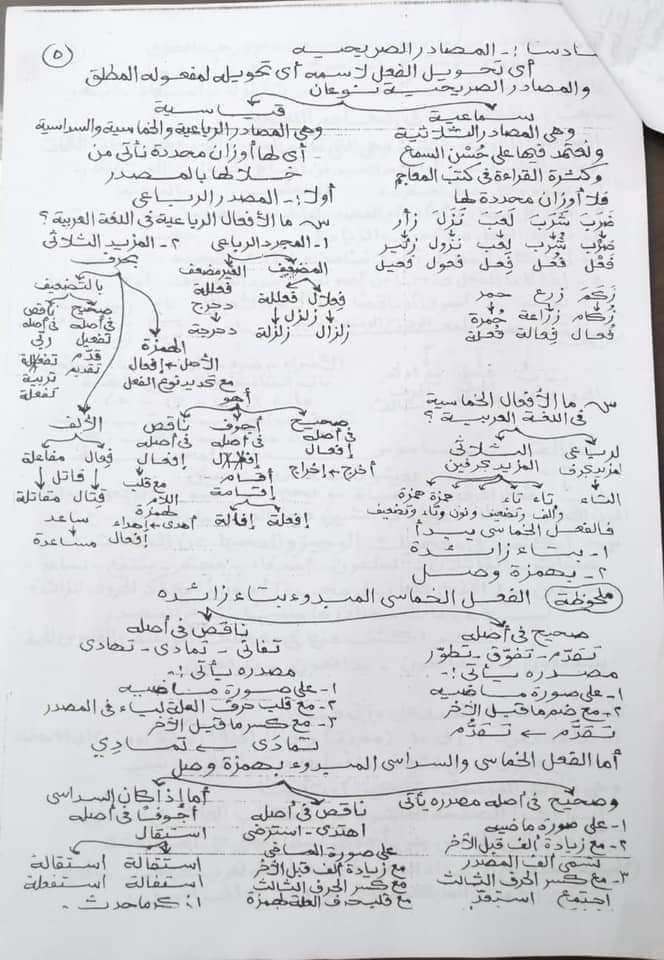 ٥
سادسا :- المصادر الصريحية
أى تحويل الفعل لاسمه أى تحويله لمفعوله المطلق
والمصادر الصريحية نوعان
سماعية
وهى المصادر الثلاثية
ونعتمد فيها على حُسْن السمع
وكثرة القراءة فى كتب المعاجم
فلا أوزان محددة لها
ضَرَبَ شَرَبَ لَعَبَ نَزَلَ زأر
ضَرْب شُرْب لَعِب نزول زئير
فَعْل فُعْل فَعِل فعول فعيل
زَكَمَ زرع حمر
زُكَام زراعة حُمرة
فُعال فِعالة فُعلة
قياسية
وهى المصادر الرباعية والخماسية والسداسية
أى لها أوزان محددة نأتى من
خلالها بالمصدر
أولاً :- المصدر الرباعى
س ما الأفعال الرباعية فى اللغة العربية ؟
١- المجرد الرباعى
المضعف
فِعلال فعللة
زلزل
زلزال زلزلة
الغير مضعف
فعللة
دحرج
دحرجة
٢- المزيد الثلاثى
بحرف
بالتضعيف
صحيح
فى أصله
تفعيل
قدّم
تقديم
ناقص
فى أصله
ربّى
تفعلة
تربية
تفعلة
الهمزة
الأصل ← إفعال
مع تحديد نوع الفعل
أهو
صحيح
فى أصله
إفعال
أخرج ← إخراج
أجوف
فى أصله
أقام
إقامة
إفعلة إفالة
ناقص
فى أصله
إفعال
مع قلب
اللام
همزة
أهدى ← إهداء
إفعال
الألف
فِعال مفاعلة
قاتل
قتال مقاتلة
ساعد
مساعدة
س ما الأفعال الخماسية
فى اللغة العربية ؟
الرباعى
المزيد بحرف
التاء
الثلاثى
المزيد بحرفين
تاء تاء همزة همزة
وألف وتضعيف ونون وتاء وتضعيف
فالفعل الخماسى يبدأ
١- بتاء زائدة
٢- بهمزة وصل
ملحوظة الفعل الخماسى المبدوء بتاء زائده
صحيح فى أصله
تقدّم - تفوّق - تطوّر
مصدره يأتى :-
١- على صورة ماضيه
٢- مع ضم ما قبل الآخر
تقدَّم ← تقدُّم
ناقص فى أصله
تفانى - تمادى - تهادى
مصدره يأتى :-
١- على صورة ماضيه
٢- مع قلب حرف العلة لياء فى المصدر
٣- مع كسر ما قبل الآخر
تمادَى ← تمادِي
أما الفعل الخماسى والسداسى المبدوء بهمزة وصل
وصحيح فى أصله مصدره يأتى
١- على صورة ماضيه
٢- مع زيادة ألف قبل الآخر
تسمى ألف المصدر
٣- مع كسر الحرف الثالث
اجتمع
ناقص فى أصله
اهتدى - استرضى
على صورة الماضى
مع زيادة ألف قبل الآخر
مع كسر الحرف الثالث
مع قلب حرف العلة لهمزة
أما إذا كان السداسى
أجوفًا فى أصله
استقال
استقالة استقالة
استفالة استفعلة
اذكر ما حدث .